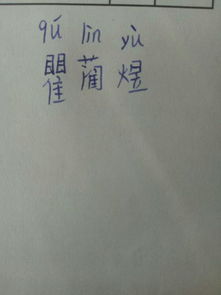 qú lìn yù
瞿蔺煜